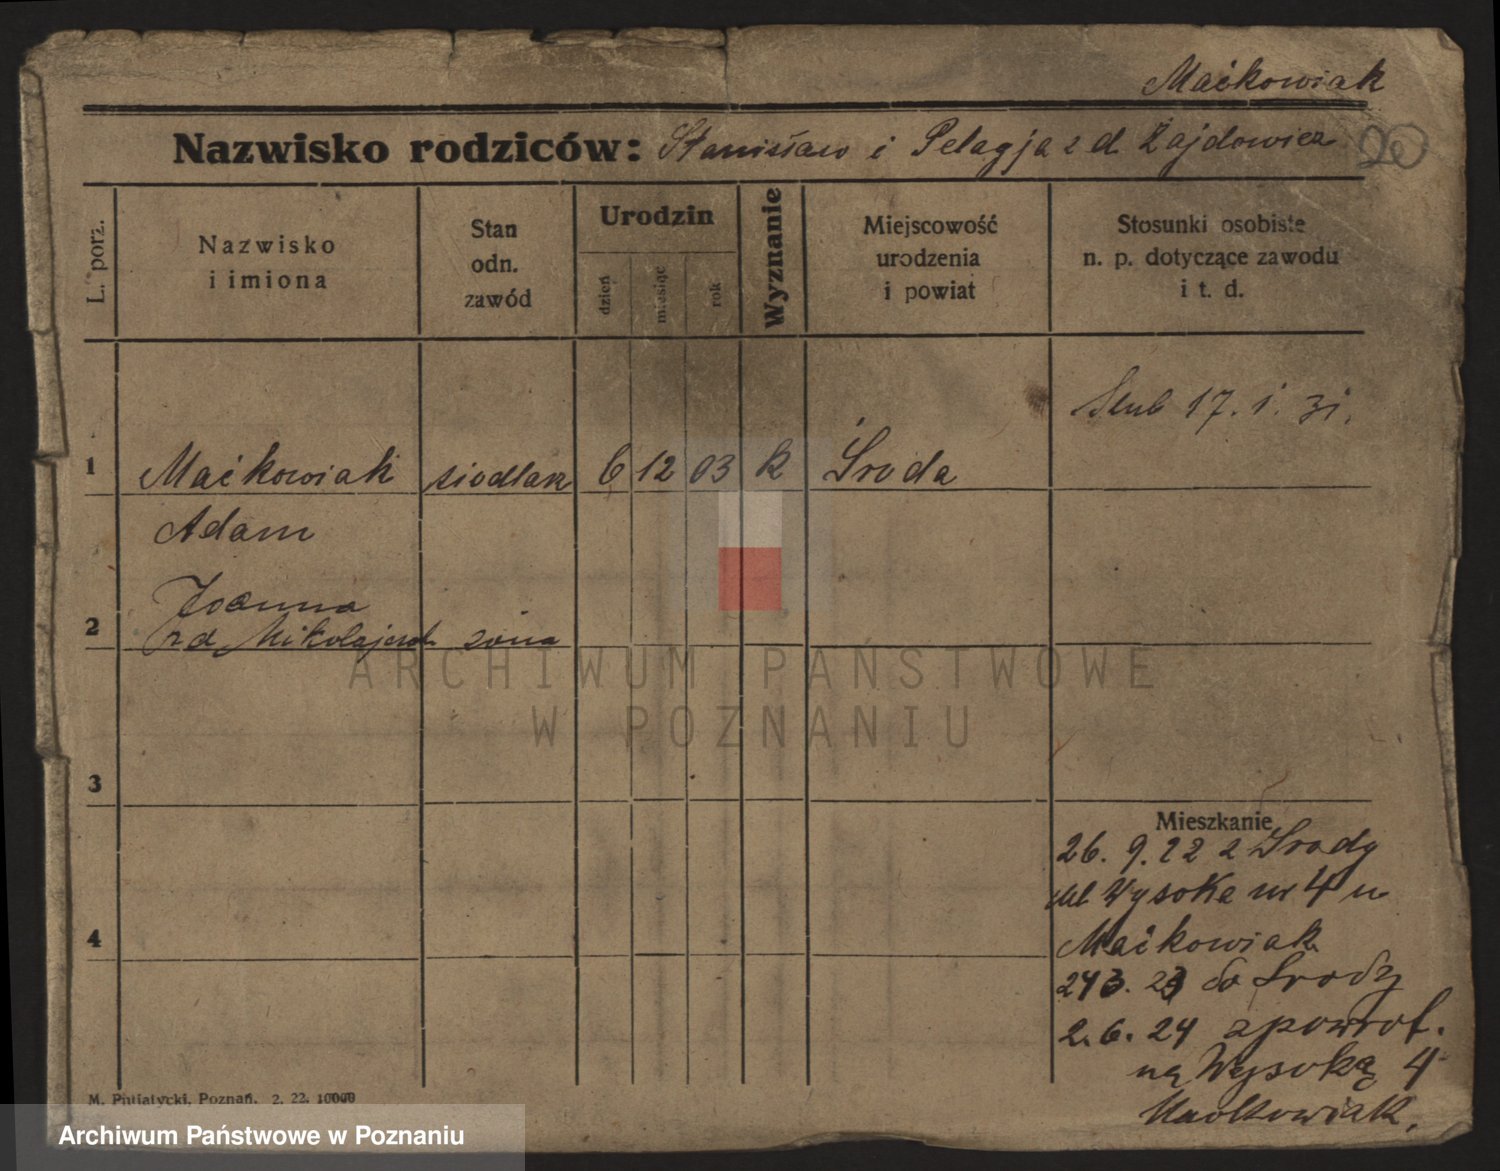 Maćkowiak
Nazwisko rodziców: Stanisław i Pelagja z d. Zajdowicz 20
L. porz.
Nazwisko
i imiona
Stan
odn.
zawód
Urodzin
dzień
miesiąc
rok
Wyznanie
Miejscowość
urodzenia
i powiat
Stosunki osobiste
n. p. dotyczące zawodu
i t. d.
Ślub 17. 1. 31.
1 Maćkowiak siodlarz 6 12 03 k Środa
Adam
Joanna
2 z d. żona
3
Mieszkanie
26. 9. 22 z Środy
Wysoka nr 4 u
4 Maćkowiak
3. 23 do Środy
2. 6. 24 zpowrot.
na Wysoką 4
Maćkowiak.
M. Putiatycki, Poznań. 2. 22. 10000
ARCHIWUM PAŃSTWOWE
W POZNANIU
Archiwum Państwowe w Poznaniu